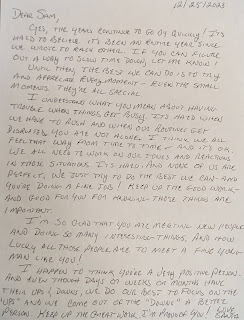 12/25/2023
Dear Sam,
Yes, the years continue to go by quickly! It's
hard to believe it's been an entire year since
we wrote to each other. If you can figure
out a way to slow time down, let me know!
Until then, the best we can do is to try
and appreciate every moment - even the small
moments. They're all special.
I understand what you mean about having
trouble when things get busy. It's hard when
we have to rush and when our routines get
disrupted. You are not alone. I think we all
feel that way from time to time - and it's ok.
We all need to work on our stress and reactions
in those situations. It's hard. And none of us are
perfect. We just try to do the best we can - and
you're doing a fine job! Keep up the good work -
and good for you for knowing those things are
important.
I'm so glad that you are meeting new people
and doing so many interesting things. And how
lucky all those people are to meet a fine young
man like you!
I happen to think you're a very positive person.
And even though days or weeks or months have
their ups & downs, we do our best to focus on the
"ups" and we come out of the "downs" a better
person. Keep up the great work. I'm proud of you! Love
Santa